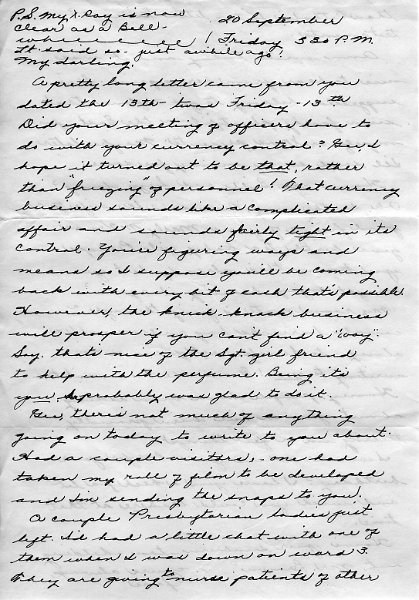 P.S. My X-Ray is now
clear as a Bell -
whee ! 20 September
Friday 330 P.M.
It said so just awhile ago!
My darling,
A pretty long letter came from you
dated the 13th - twas Friday - 13th
Did your meeting of officers have to
do with your currency control? Gee, I'd
hope it turned out to be that, rather
than "freezing" of personnel! That currency
business sounds like a complicated
affair and sounds fairly tight in its
control. You're figuring ways and
means so I suppose you'll be coming
back with every bit of cash that's possible.
However, the knick-knack business
will prosper if you can't find a "way".
Say, that's nice of the Sgt. girl friend
to help with the perfume. Being it's
you, probably was glad to do it.
Gee, there's not much of anything
going on today to write to you about.
Had a couple visitors, - one had
taken my roll of film to be developed
and I'm sending the snaps to you.
A couple Presbyterian ladies just
left. I'd had a little chat with one of
them when I was down on ward 3.
They are giving to nurse patients of other